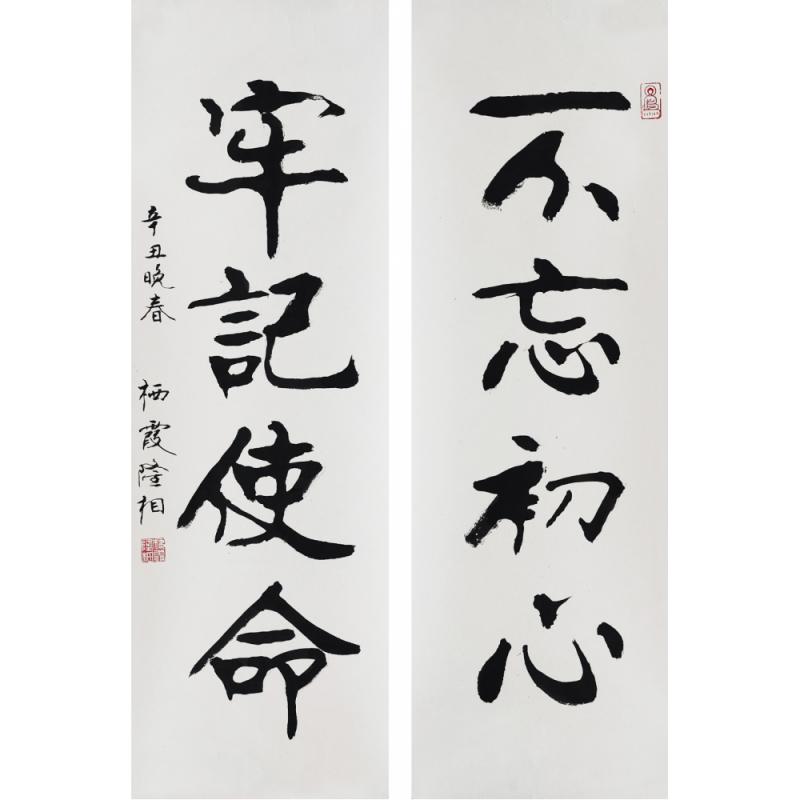 不忘初心
牢記使命
辛丑晚春 栖霞隆相